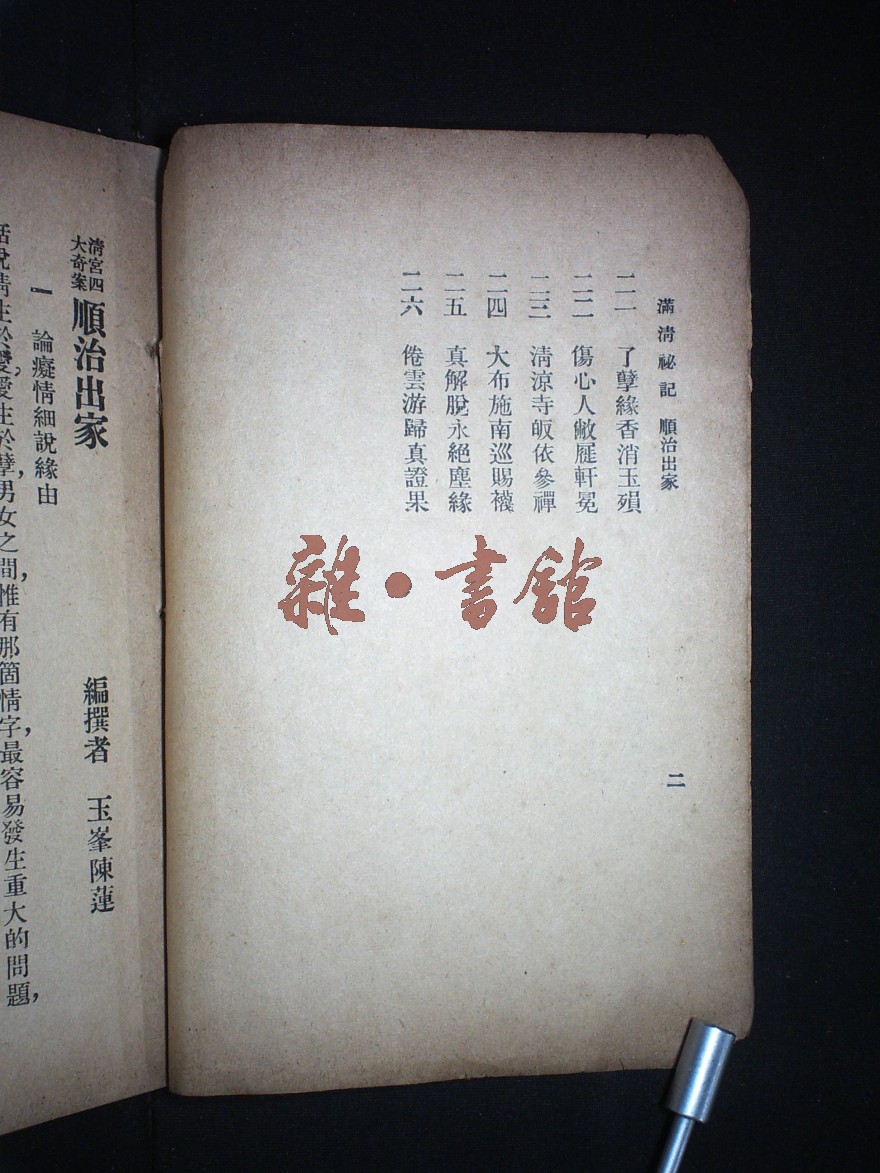 滿清祕記　順治出家
二一　了孽緣香消玉殞
二二　傷心人敝屣軒冕
二三　清涼寺皈依參禪
二四　大布施南巡賜襪
二五　真解脫永絕塵緣
二六　倦雲游歸真證果
二
雜·書館
清宮四大奇案
順治出家
編撰者　玉峯陳蓮
一　論癡情細說緣由
話說情生於愛，愛生於孽，男女之間，惟有那箇情字，最容易發生重大的問題，